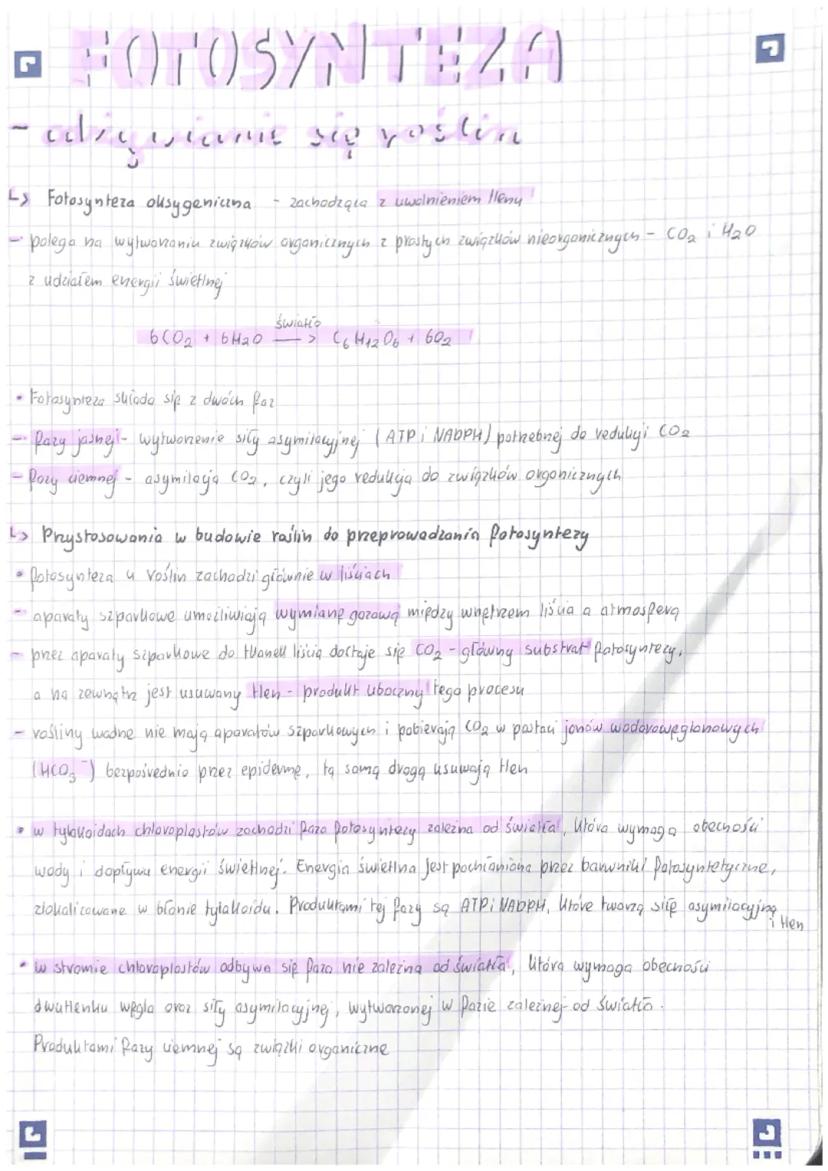 FOTOSYNTEZA
- odżywianie się roślin
↳ Fotosynteza oksygeniczna - zachodząca z uwolnieniem tlenu
- polega na wytworzeniu związków organicznych z prostych związków nieorganicznych - CO₂ i H₂O
z udziałem energii świetlnej
światło
6CO₂ + 6H₂O → C₆H₁₂O₆ + 6O₂
• Fotosynteza składa się z dwóch faz
- fazy jasnej - wytworzenie siły asymilacyjnej (ATP i NADPH) potrzebnej do redukcji CO₂
- fazy ciemnej - asymilacja CO₂, czyli jego redukcja do związków organicznych
↳ Przystosowania w budowie roślin do przeprowadzania fotosyntezy
• fotosynteza u roślin zachodzi głównie w liściach
- aparaty szparkowe umożliwiają wymianę gazową między wnętrzem liścia a atmosferą
- przez aparaty szparkowe do tkanek liścia dostaje się CO₂ - główny substrat fotosyntezy,
a na zewnątrz jest usuwany tlen - produkt uboczny tego procesu
- rośliny wodne nie mają aparatów szparkowych i pobierają CO₂ w postaci jonów wodorowęglanowych
(HCO₃⁻) bezpośrednio przez epidermę, tą samą drogą usuwają tlen
• w tylakoidach chloroplastów zachodzi faza fotosyntezy zależna od światła, która wymaga obecności
wody i dopływu energii świetlnej. Energia świetlna jest pochłaniana przez barwniki fotosyntetyczne,
zlokalizowane w błonie tylakoidu. Produktami tej fazy są ATP i NADPH, które tworzą siłę asymilacyjną
i tlen
• w stromie chloroplastów odbywa się faza nie zależna od światła, która wymaga obecności
dwutlenku węgla oraz siły asymilacyjnej, wytworzonej w fazie zależnej od światła.
Produktami fazy ciemnej są związki organiczne